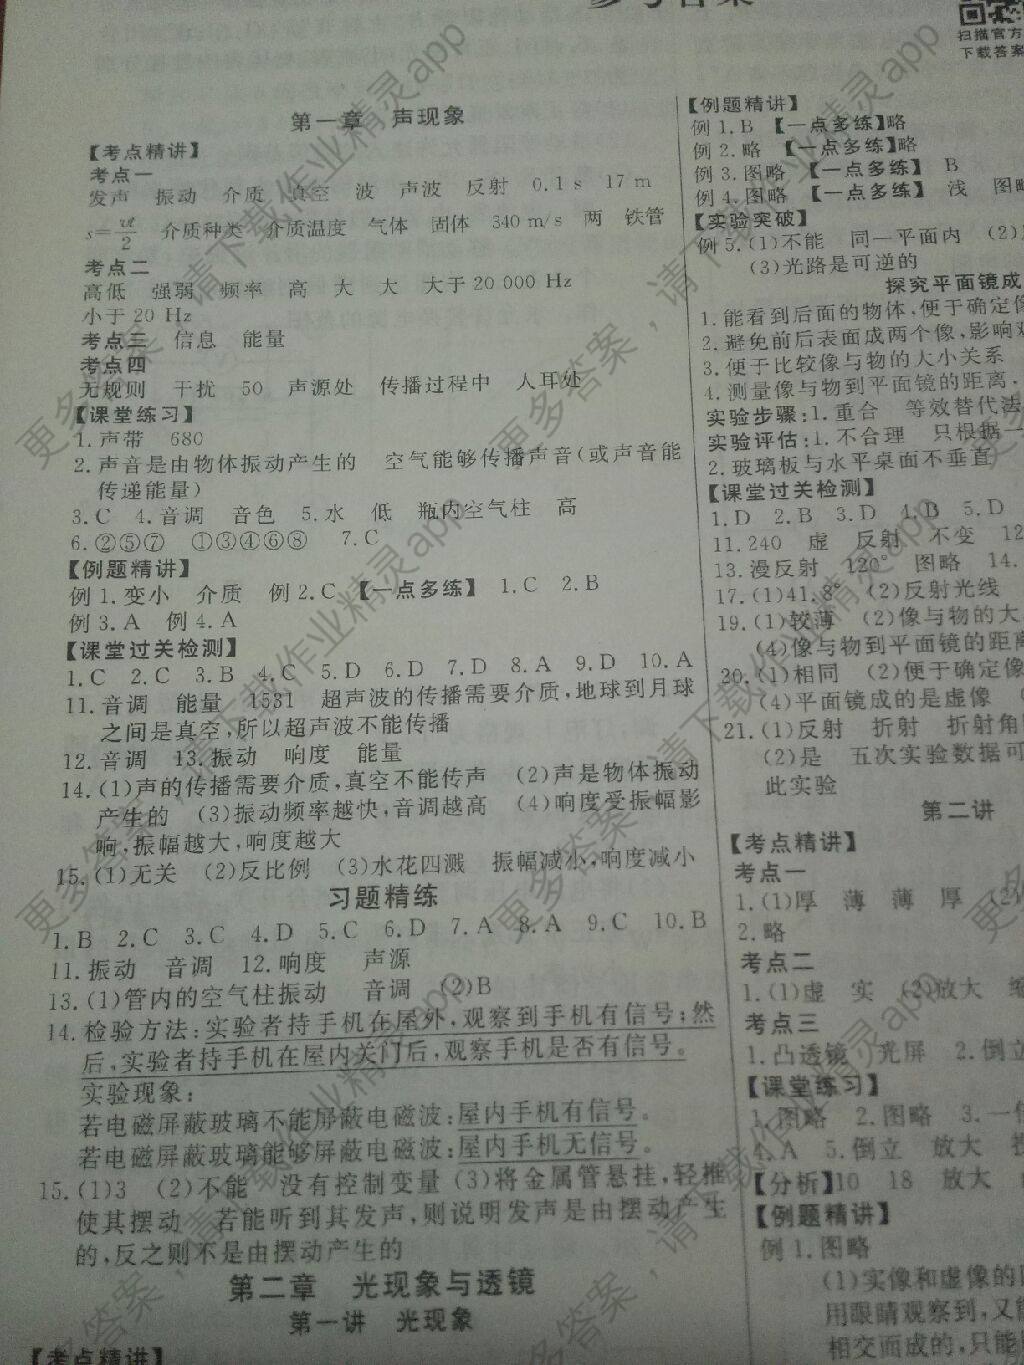 参考答案
扫描官方
下载答案
第一章 声现象
【考点精讲】
考点一
发声 振动 介质 真空 波 声波 反射 0.1 s 17 m
s=vt/2 介质种类 介质温度 气体 固体 340 m/s 两 铁管
考点二
高低 强弱 频率 高 大 大 大于 20 000 Hz
小于 20 Hz
考点三 信息 能量
考点四
无规则 干扰 50 声源处 传播过程中 人耳处
【课堂练习】
1.声带 680
2.声音是由物体振动产生的 空气能够传播声音(或声音能
传递能量)
3.C 4.音调 音色 5.水 低 瓶内空气柱 高
6.②⑤⑦ ①③④⑥⑧ 7.C
【例题精讲】
例 1.变小 介质 例 2.C 【一点多练】 1.C 2.B
例 3.A 例 4.A
【课堂过关检测】
1.C 2.C 3.B 4.C 5.D 6.D 7.D 8.A 9.D 10.A
11.音调 能量 1531 超声波的传播需要介质,地球到月球
之间是真空,所以超声波不能传播
12.音调 13.振动 响度 能量
14.(1)声的传播需要介质,真空不能传声 (2)声是物体振动
产生的 (3)振动频率越快,音调越高 (4)响度受振幅影
响,振幅越大,响度越大
15.(1)无关 (2)反比例 (3)水花四溅 振幅减小,响度减小
习题精练
1.B 2.C 3.C 4.D 5.C 6.D 7.A 8.A 9.C 10.B
11.振动 音调 12.响度 声源
13.(1)管内的空气柱振动 音调 (2)B
14.检验方法:实验者持手机在屋外,观察到手机有信号;然
后,实验者持手机在屋内关门后,观察手机是否有信号。
实验现象:
若电磁屏蔽玻璃不能屏蔽电磁波:屋内手机有信号。
若电磁屏蔽玻璃能够屏蔽电磁波:屋内手机无信号。
15.(1)3 (2)不能 没有控制变量 (3)将金属管悬挂,轻推
使其摆动 若能听到其发声,则说明发声是由摆动产生
的,反之则不是由摆动产生的
第二章 光现象与透镜
第一讲 光现象
【考点精讲】
【例题精讲】
例 1.B 【一点多练】略
例 2.略 【一点多练】略
例 3.图略 【一点多练】 B
例 4.图略 【一点多练】 浅 图略
【实验突破】
例 5.(1)不能 同一平面内 (2)
(3)光路是可逆的
探究平面镜成
1.能看到后面的物体,便于确定像
2.避免前后表面成两个像,影响
3.便于比较像与物的大小关系
4.测量像与物到平面镜的距离
实验步骤:1.重合 等效替代法
实验评估:1.不合理 只根据一
2.玻璃板与水平桌面不垂直
【课堂过关检测】
1.D 2.B 3.D 4.B 5.D
11.240 虚 反射 不变 12
13.漫反射 120° 图略 14.
17.(1)41.8° (2)反射光线
19.(1)较薄 (2)像与物的大
(4)像与物到平面镜的距离
20.(1)相同 (2)便于确定像
(4)平面镜成的是虚像
21.(1)反射 折射 折射角
(2)是 五次实验数据可
此实验
第二讲
【考点精讲】
考点一
1.(1)厚 薄 薄 厚 (2)
2.略
考点二
1.(1)虚 实 (2)放大 缩
考点三
1.凸透镜 光屏 2.倒立
【课堂练习】
1.图略 2.图略 3.一倍
4.A 5.倒立 放大 投
【分析】10 18 放大
【例题精讲】
例 1.图略
(1)实像和虚像的
用眼睛观察到,又能
相交而成的,只能
更多答案,请下载作业精灵app
更多答案,请下载作业精灵app
更多答案,请下载作业精灵app
更多答案,请下载作业精灵app